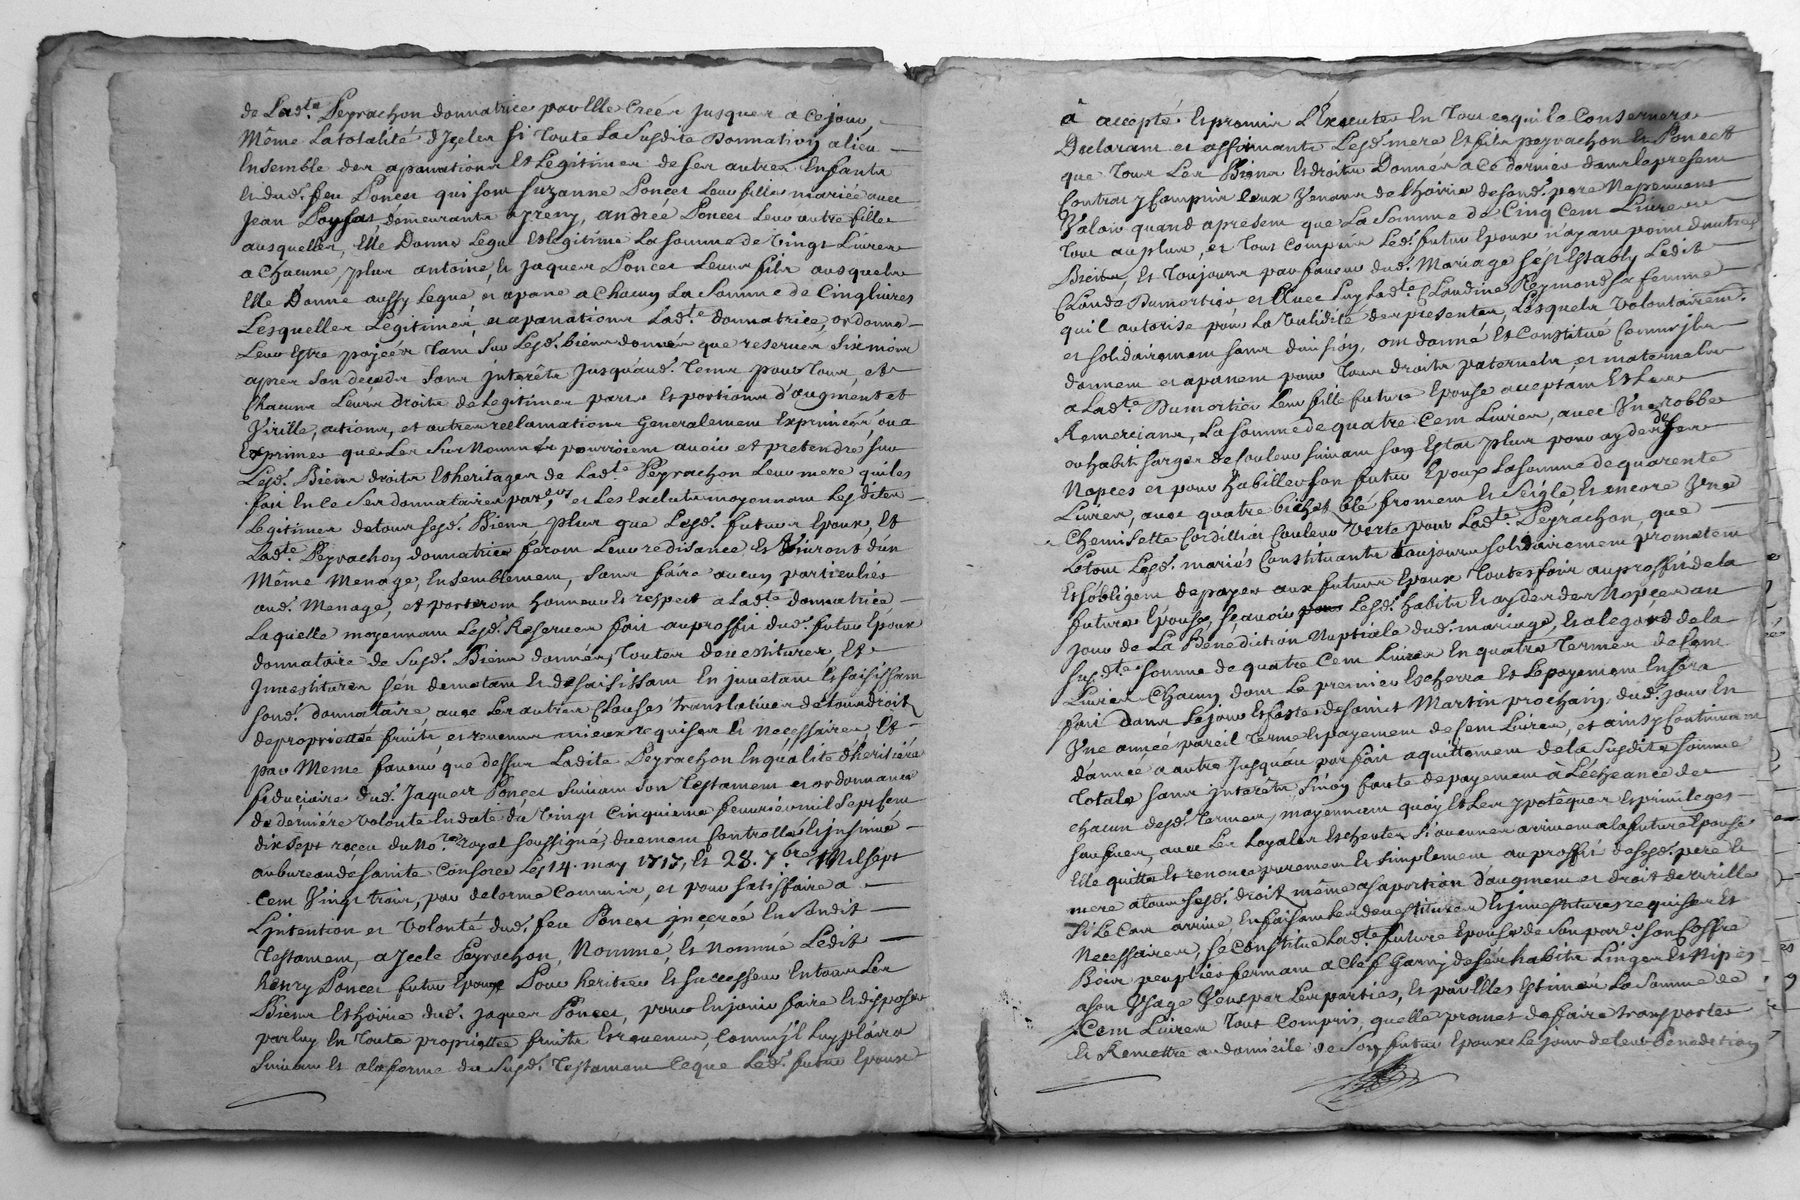 de Lad.te Peyrachon donnatrice par Elle Créés jusques a ce jour,
Même La totalité d'Iceles si Toute La Susdite Donnation a lieu
Ensemble des apanations Et Legitimes de ses autres Enfants
et dud. feu Ponces qui sont Suzanne Ponces Leur fille mariée avec
Jean demeurants a Ireny, andrée Ponces Leur autre fille
ausquelles, Elle Donne Legue et Legitime La somme de Vingt Livres
a Chacune, plus antoine, et Jaques Ponces Leurs fils ausquels
Elle Donne aussy Legue et apane a Chacun La Somme de Cinq livres
Lesquelles Légitimes, et apanations Lad.te donnatrice, ordonne
Leur Estre payées Tant sur Lesd. biens donnés que reservés Six mois
apres son decedz sans interêts jusquaud. Tems pour Tous, et
Chacuns Leurs droits de Legitimes parts et portions d'augment et
Virille, actions, et autres reclamations Generalement Exprimées, ou a
Exprimer que Les Sus Nommés pourroient avoir et pretendre sur
Lesd. Biens droits et heritages de Lad.te Peyrachon Leur mere qui les
fait En ce Ses donnataires et Les Excluts moyennant Lesdites
Legitimes de tous sesd. Biens plus que Lesd. futurs Epoux, Et
Lad.te Peyrachon donnatrice feront Leur residance et Vivront d'un
Même Menage, Ensemblement, sans faire aucun particulier
aud. Menage, et porteront honneur et respect a Lad.te donnatrice,
Laquelle moyennant Lesd. Reserves fait au proffit dud. futur Epoux
donnataire de Susd. Biens donnés, Toutes devestitures, Et
Jnvestitures s'en demetant et desaisissant En juvetant et saisissant
sond. donnataire, avec Les autres Clauses translatives de tous droits
de proprietté fruits, et revenus mieux requises et Necessaires, Et
par Même faveur que dessur Ladite Peyrachon En qualité d'heritiére
fiduciaire dud. Jaques Ponces Suivant son Testament et ordonnance
de derniére volonté En daté du Vingt Cinquieme feuvrié mil Sept Cent
dix Sept reçeu du No.re Royal Soussigné, duement Controllé et insinué
au bureau de Sainte Consorce Les 14. may 1717, Et 28. 7.bre Mil Sept
Cent Vingt trois, par delorme Commis, et pour satisffaire a
L'jntention et Volonté dud. feu Ponces inserée En Sondit
Testament, a Jcele Peyrachon, Nommé, et Nomme Ledit
henry Ponces futur Epoux Pour heritier et successeur En tous Les
Biens et hoirie dud. Jaques Ponces, pour En jouir faire et disposer
par luy En Toute proprietée fruits et revenus, Comm'jl Luy plaira
Suivant Et a la forme du Susd. Testament Ceque Led. futur Epoux
à accepté. et promis L'Executer En Tout ce qui le Concernera
Declarant et affirmants Lesd. mere Et fils peyrachon et Ponces
que Tous Les Biens et droits Donnés a Ce dernier dans le present
Contrat y Compris Ceux Venans de l'hoirie de fond. pere Ne peuvent
Valoir quand apresent que La Somme de Cinq Cent Livres
Tout au plus, et Tout Compris Led. futur Epoux n'ayant point d'autres
Biens, Et Toujours par faveur dud. Mariage s'est Estably Ledit
Claude Dumortier et avec Luy Lad.te Claudine Reymond sa femme
qu'il autorise pour La Validité des presentes, Lesquels Volontairem.t
et solidairement sans division, ont donné et Constitué Comme jls
donnent et apanent pour Tous droits paternels, et maternels
a Lad.te Dumortier Leur fille future Epouse acceptant Et Les
Remerciant, La Somme de quatre Cent Livres, avec Vne robbe
ou habit sarge de Couleur suivant son Estat plus pour ayder
Nopces et pour habiller son futur Epoux La somme de quarente
Livres, avec quatre bichet blé froment et Seigle et encore Vne
Chemisette Cordillat Couleur Verte pour Lad.te Peyrachon, que
Letout Lesd. mariés Constituants toujours solidairement prometent
Et s'obligent de payer aux futurs Epoux Toutesfois au proffit de la
future Epouse, sçavoir Lesd. habits et ayder des Nopçes au
jour de La Bénédiction Nuptiale dud. mariage, Et a legard de la
susd.te somme de quatre Cent Livres En quatre Termes de Cent
Livres Chacun dont Le premier Escherra Et Le payement En sera
fait dans Le jour et feste de Saint Martin prochain, dud. jour En
Vne année pareil Terme et payement de Cent Livres, et ainsy Continuer
d'année a autre Jusquau parfait aquittement de la Susdite somme
Totale sans jnterêts Sinon faute de payement à L'écheance de
Chacun desd. Termes, moyennant quoy Et Les ypotêques et privileges
saufves, avec Les Loyales Escheutes si aucunes arrivent a la future Epouse
Elle quitte Et renonce purement Et simplement au proffit desesd. pere Et
mere a tous sesd. droits même a sa portion d'augment et droit de virille
Si Le Cas arrive, En faisant Les devestitures Et jnvestitures requises Et
Necessaires, Se Constitue Lad.te future Epouse de son Coffre
Bois peuplier fermant a Clef Garny de ses habits Linges Et Nipes
a son Vsage Veus par Les parties, Et par Elles Estimés La Somme de
Cent Livres Tout Compris, quelle promet de faire transporter
Et Remettre au domicile de Son futur Epoux Le jour de leur Benediction